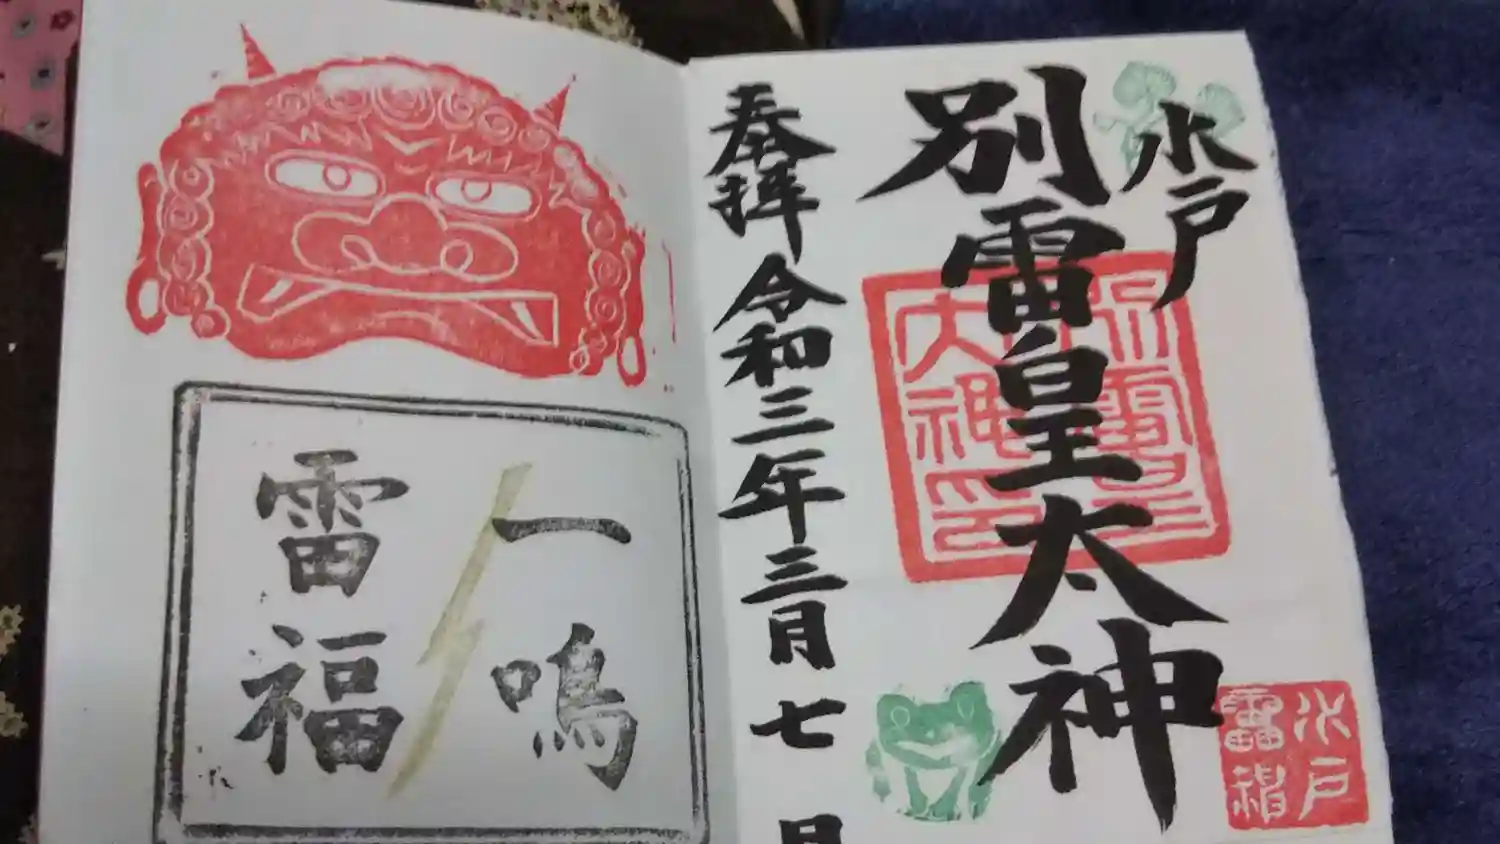 水戸
別雷皇太神
奉拝 令和三年三月七日
一鳴
雷福
水戸
雷神